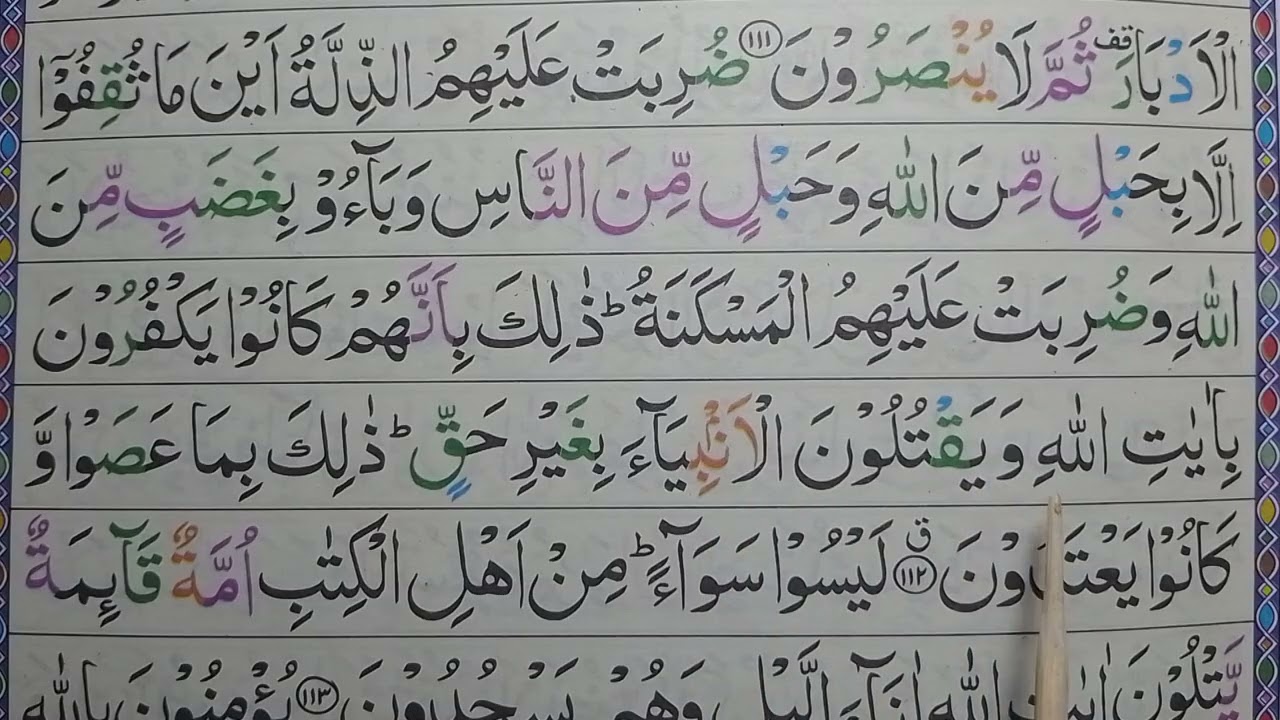 الْاَدْبَارَ ۫ قف ثُمَّ لَا يُنْصَرُوْنَ ﴿۱۱۱﴾ ضُرِبَتْ عَلَيْهِمُ الذِّلَّةُ اَيْنَ مَا ثُقِفُوْۤا
اِلَّا بِحَبْلٍ مِّنَ اللّٰهِ وَحَبْلٍ مِّنَ النَّاسِ وَبَآءُوْ بِغَضَبٍ مِّنَ
اللّٰهِ وَضُرِبَتْ عَلَيْهِمُ الْمَسْكَنَةُ ؕ ذٰلِكَ بِاَنَّهُمْ كَانُوْا يَكْفُرُوْنَ
بِاٰيٰتِ اللّٰهِ وَيَقْتُلُوْنَ الْاَنْۢبِيَآءَ بِغَيْرِ حَقٍّ ؕ ذٰلِكَ بِمَا عَصَوْا وَّ
كَانُوْا يَعْتَدُوْنَ ﴿۱۱۲﴾ ق لَيْسُوْا سَوَآءً ؕ مِنْ اَهْلِ الْكِتٰبِ اُمَّةٌ قَآىِٕمَةٌ
يَّتْلُوْنَ اٰيٰتِ اللّٰهِ اٰنَآءَ الَّيْلِ وَهُمْ يَسْجُدُوْنَ ﴿۱۱۳﴾ يُؤْمِنُوْنَ بِاللّٰهِ